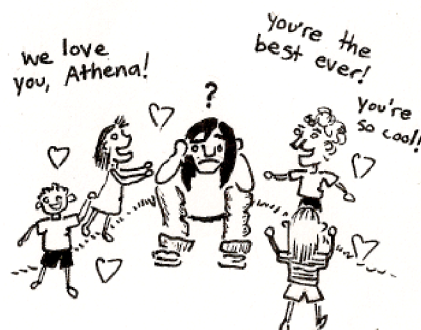 we love
you, Athena!
you're the
best ever!
you're
so cool!
?